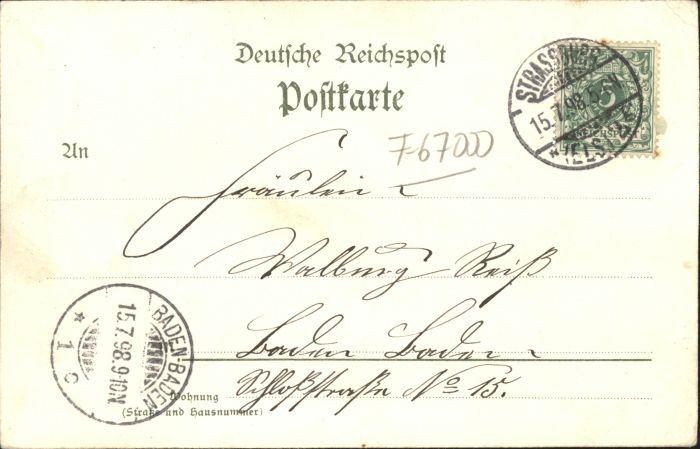 Deutsche Reichspost
Postkarte
STRASSBURG
15.7.98.5-6N
*(ELS)
REICHSPOST
An
F67000
Fräulein
Walburg Reiß
Baden Baden
Schloßstraße No 15.
Wohnung
(Straße und Hausnummer)
BADEN-BADEN
15.7.98.9-10N
* 1 c